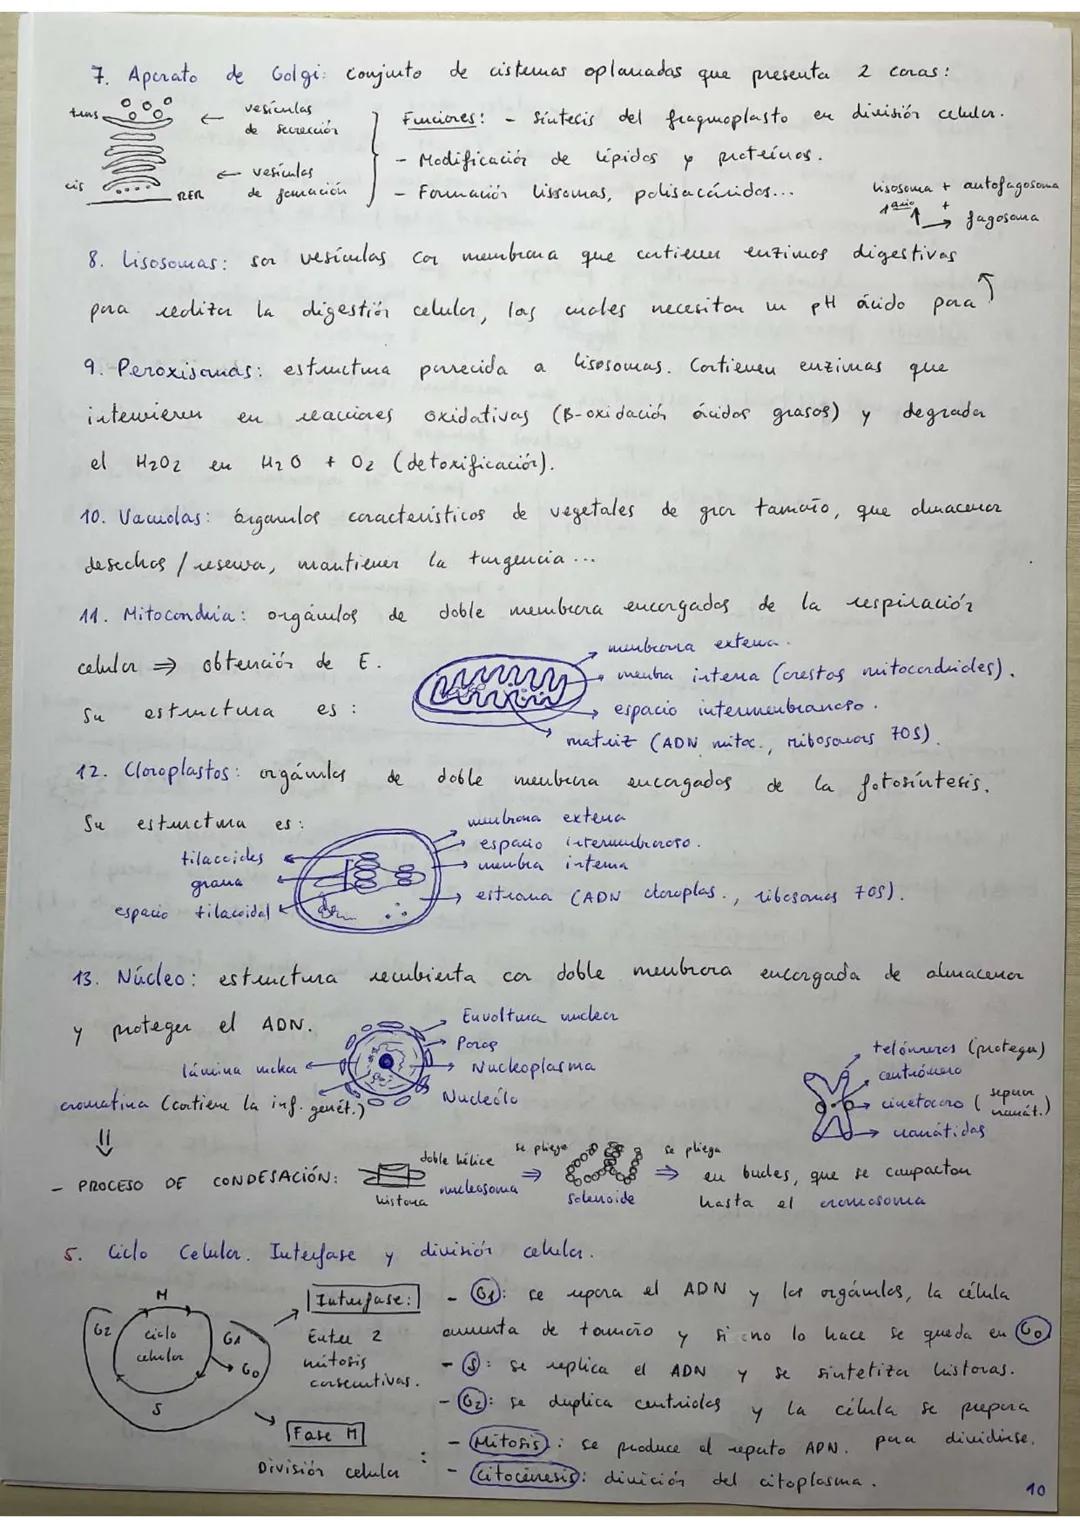 7. Aparato de Golgi: conjunto de cisternas aplanadas que presenta 2 caras:
trans
cis
RER
vesículas
de secreción
vesículas
de formación
Funciones: - Síntesis del fragmoplasto en división celular.
- Modificación de lípidos y proteínas.
- Formación lisosomas, polisacáridos...
lisosoma + autofagosoma
1ario
+
fagosoma
8. Lisosomas: son vesículas con membrana que contienen enzimas digestivas
para realizar la digestión celular, las cuales necesitan un pH ácido para
9. Peroxisomas: estructura parecida a lisosomas. Contienen enzimas que
intervienen en reacciones oxidativas (B-oxidación ácidos grasos) y degradan
el H2O2 en H2O + O2 (detoxificación).
10. Vacuolas: órganulos característicos de vegetales de gran tamaño, que almacenan
desechos / reserva, mantienen la turgencia ...
11. Mitocondria: orgánulos de doble membrana encargados de la respiración
celular ⇒ obtención de E.
Su estructura es:
membrana externa.
membra interna (crestas mitocondriales).
espacio intermembranoso.
matriz (ADN mitoc., ribosomas 70S).
12. Cloroplastos: orgánulos de doble membrana encargados de la fotosíntesis.
Su estructura es:
tilacoides
grana
espacio tilacoidal
membrana externa
espacio intermembranoso.
membra interna
estroma (ADN cloroplas., ribosomas 70S).
13. Núcleo: estructura recubierta con doble membrana encargada de almacenar
y proteger el ADN.
lámina nuclear
cromatina (contiene la inf. genét.)
Envoltura nuclear
Poros
Nucleoplasma
Nucleólo
telómeros (protegen)
centrómero
cinetocoro (separan cromát.)
cromátidas
- PROCESO DE CONDESACIÓN:
doble hélice
nucleosoma
histona
se pliega
solenoide
se pliega
en bucles, que se compactan
hasta el cromosoma
5. Ciclo Celular. Interfase y división celular.
M
G2
ciclo
celular
G1
G0
S
Interfase:
Entre 2
mitosis
consecutivas.
Fase M
División celular
- G1: se repara el ADN y los orgánulos, la célula
aumenta de tamaño y si no lo hace se queda en G0
- S: se replica el ADN y se sintetiza histonas.
- G2: se duplica centriolos y la célula se prepara
para dividirse.
- Mitosis: se produce el reparto ADN.
- Citocinesis: división del citoplasma.
10